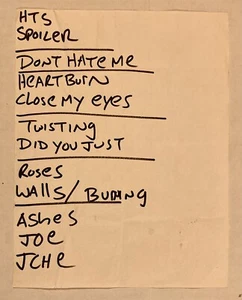 HTS
SPOILER
DON'T HATE ME
HEARTBURN
CLOSE MY eyes
TWISTING
DID YOU JUST
ROSES
WALLS/
ASHES
JOE
JCHE